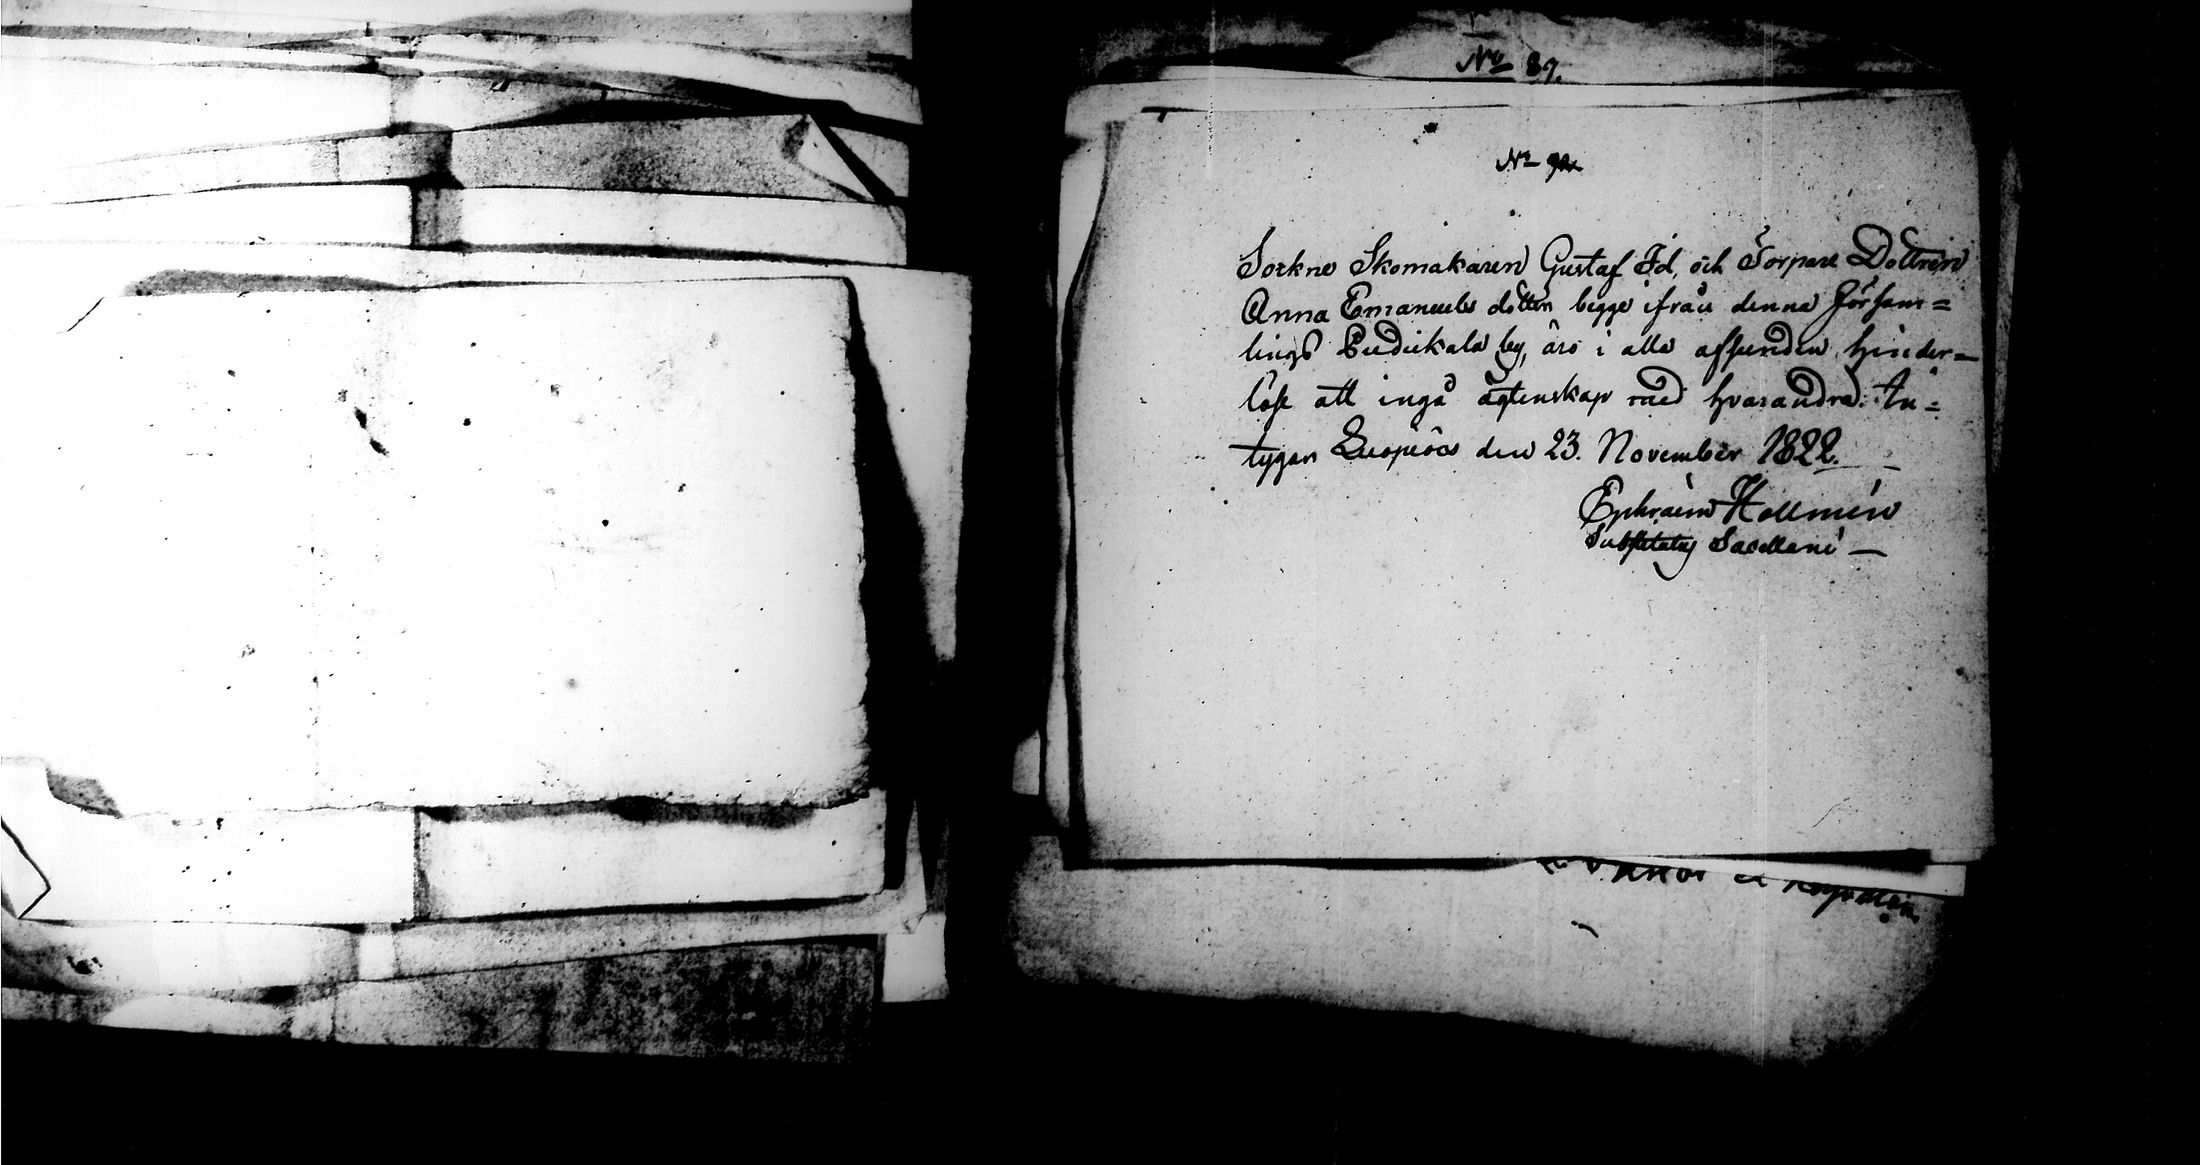 No 89.
No 90
Sockne Skomakaren Gustaf Id, och Torpare Dottren
Anna Emanuels dotter begge ifrån denna Försam=
lings Pudikala by, äro i alla afseenden hinder=
löse att ingå ägtenskap med hvarandra. In=
tygar Luopiois den 23. November 1822.
Ephraim Hellmén
Substitutus Sacellani